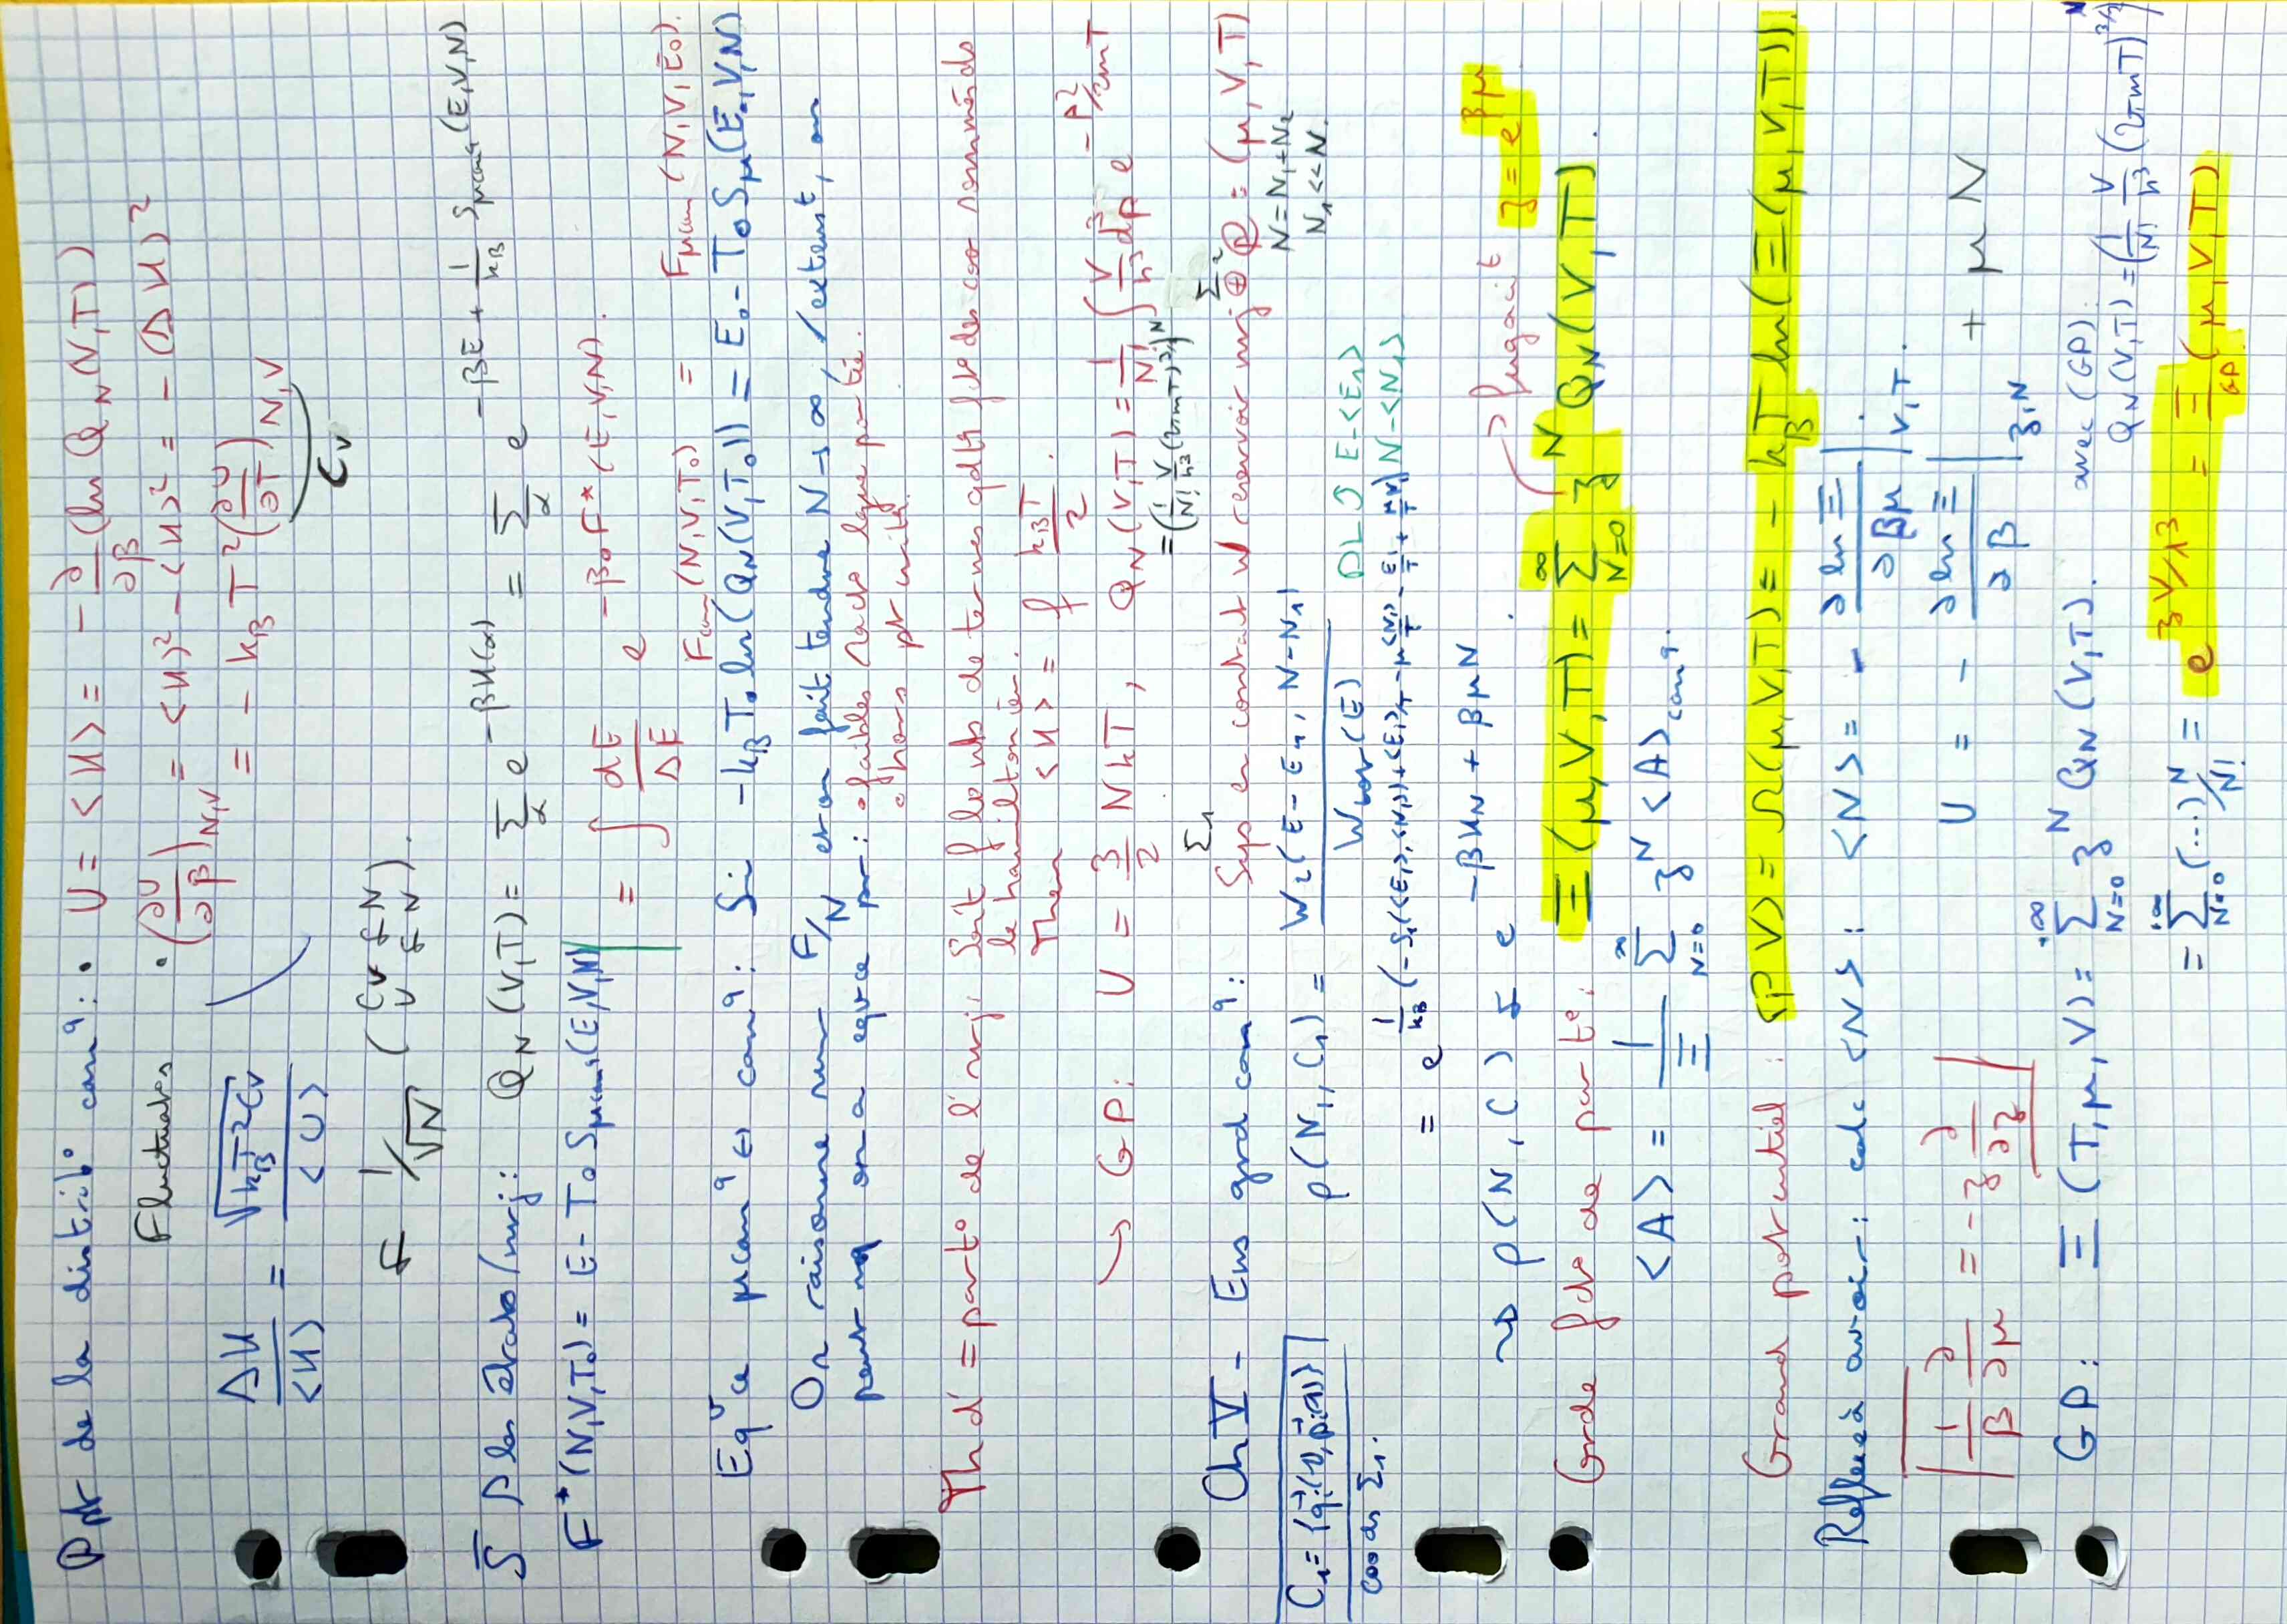 Ppté de la distrib° can^q : • U = <H> = - ∂/∂β (ln Q_N(V,T))
Fluctuat°s • (∂U/∂β)_{N,V} = <H>² - <H²> = - (ΔH)²
= - k_B T² (∂U/∂T)_{N,V}
C_V
ΔH/<H> = √(k_B T² C_V)/<U>
∝ 1/√N (C_V ∝ N U ∝ N).
les états/nrj : Q_N(V,T) = Σ_α e^{-βH(α)} = Σ_α e^{-βE + 1/k_B S_{μcan^q}(E,V,N)}
F*(N,V,T₀) = E - T₀ S_{μcan^q}(E,V,N) = ∫ dE/ΔE e^{-β₀F*(E,V,N)}.
F_can(N,V,T₀) = F_μcan(N,V,E₀).
Eq^v ce μcan^q ⇔ can^q : Si -k_B T₀ ln(Q_N(V,T₀)) = E₀ - T₀ S_μ(E₀,V,N)
On raisonne sur F/N et on fait tendre N → ∞ / extensT, on
peut mq on a eqvce pr : • faibles • hors pt critq.
Th d'équiparto de l'nrj. Soit f le nb de termes qdtq
le hamiltonien.
Then <H> = f k_B T/2.
→ GP : U = 3/2 N k T, Q_N(V,T) = 1/N! ∫ V/h³ d³p e^{-p²/2mT}
= (1/N! V/h³ (2πmT)^{3/2})^N
Ch V - Ens grd can^q : Σ₁ Sys en contact w/ reservoir nrj ⊕ Σ² = (μ,V,T)
N = N₁+N₂
N₁ << N.
C₁ = {q⃗ᵢ(1), p⃗ᵢ(1)}
coo ds Σ₁.
ρ(N₁, C₁) = W₂(E-E₁, N-N₁)/W_tot(E) DL ↻ E-<E₁> N-<N₁>
= e^{1/k_B (-S₁(<E₁>,<N₁>) + <E₁>/T - μ<N₁>/T - E₁/T + μN₁/T)}
⇝ ρ(N, C) ∝ e^{-βH_N + βμN}.
Grde fct° de part° : Ξ(μ,V,T) = Σ_{N=0}^{∞} z^N Q_N(V,T).
→ fugacité z = e^{βμ}
<A> = 1/Ξ Σ_{N=0}^{∞} z^N <A>_{can^q}.
Grand potentiel : <PV> = Ω(μ,V,T) = - k_B T ln(Ξ(μ,V,T)).
Reflexe à avoir : calc <N> : <N> = - ∂ln Ξ/∂βμ |_{V,T}.
1/β ∂/∂μ = - z ∂/∂z
U = - ∂ln Ξ/∂β |_{z,N} + μN
GP : Ξ(T,μ,V) = Σ_{N=0}^{+∞} z^N Q_N(V,T). avec (GP) :
Q_N(V,T) = (1/N! V/h³ (2πmT)^{3/2})^N
= Σ_{N=0}^{+∞} (...)^N/N! = e^{zV/λ³} = Ξ_{GP}(μ,V,T)